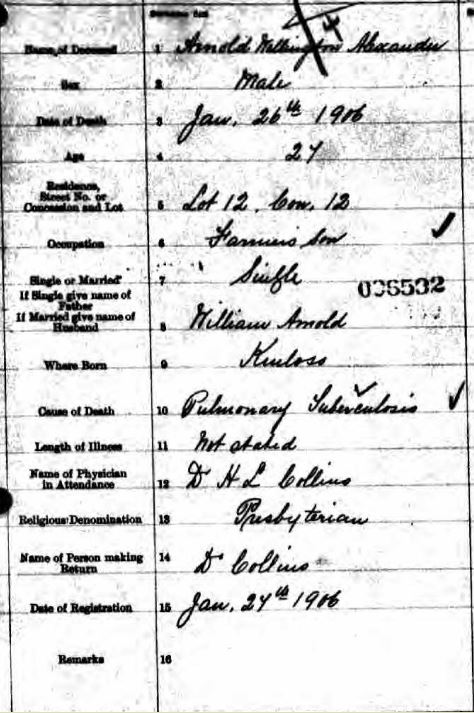 Surname first
Name of Deceased 1 Arnold Wellington Alexander
Sex 2 Male
Date of Death 3 Jan. 26th 1906
Age 4 27
Residence,
Street No. or
Concession and Lot 5 Lot 12. Con. 12
Occupation 6 Farmers Son
Single or Married 7 Single
006532
If Single give name of
Father
If Married give name of
Husband 8 William Arnold
Where Born 9 Kinloss
Cause of Death 10 Pulmonary Tuberculosis
Length of Illness 11 Not stated
Name of Physician
in Attendance 12 Dr H L Collins
Religious Denomination 13 Presbyterian
Name of Person making
Return 14 Dr Collins
Date of Registration 15 Jan. 27th 1906
Remarks 16